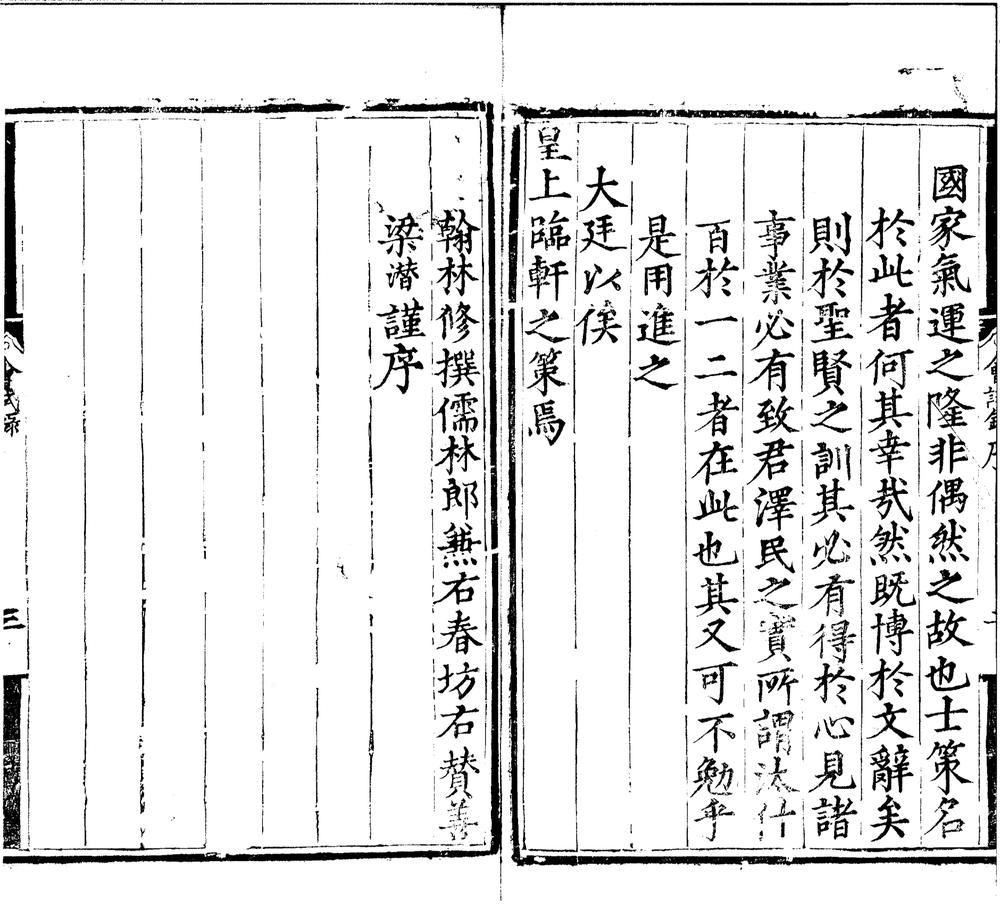 國家氣運之隆非偶然之故也士策名
於此者何其幸㢤然既博於文辭矣
則於聖賢之訓其必有得於心見諸
事業必有致君澤民之實所謂汰什
百於一二者在此也其又可不勉乎
是用進之
大廷以俟
皇上臨軒之策焉
翰林修撰儒林郎兼右春坊右賛善
梁潛謹序
會試錄
三